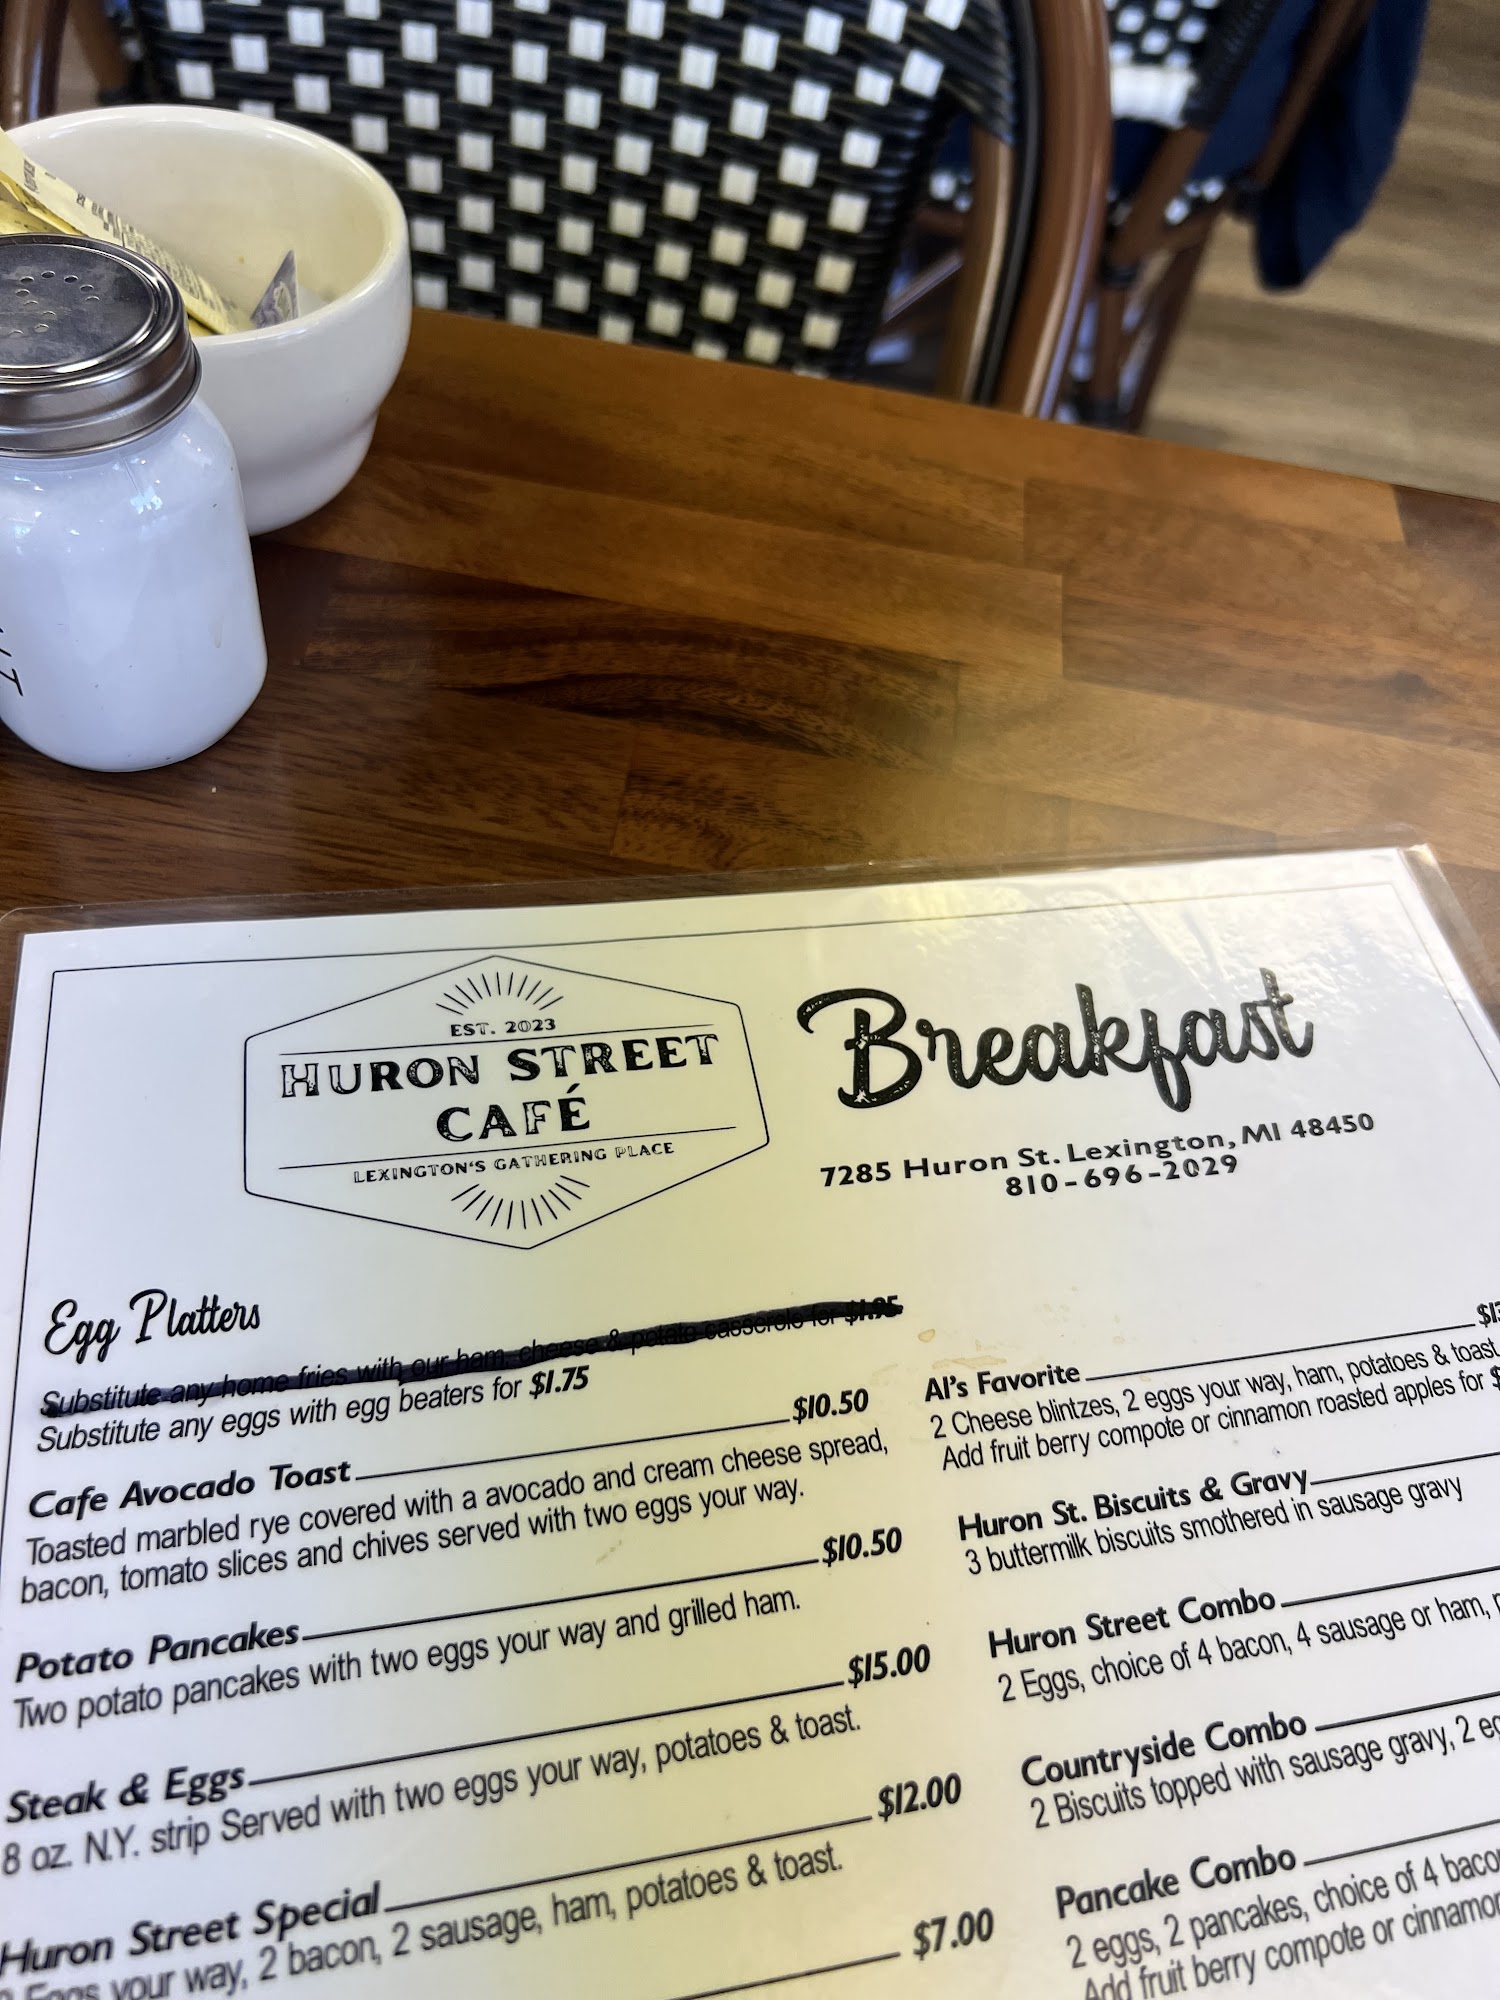 EST. 2023
HURON STREET
CAFÉ
LEXINGTON'S GATHERING PLACE
Breakfast
7285 Huron St. Lexington, MI 48450
810-696-2029
Egg Platters
Substitute any home fries with our ham, cheese & potato casserole for $1.95
Substitute any eggs with egg beaters for $1.75
Cafe Avocado Toast $10.50
Toasted marbled rye covered with a avocado and cream cheese spread,
bacon, tomato slices and chives served with two eggs your way.
Potato Pancakes $10.50
Two potato pancakes with two eggs your way and grilled ham.
Steak & Eggs $15.00
8 oz. N.Y. strip Served with two eggs your way, potatoes & toast.
Huron Street Special $12.00
Eggs your way, 2 bacon, 2 sausage, ham, potatoes & toast.
$7.00
Al's Favorite
2 Cheese blintzes, 2 eggs your way, ham, potatoes & toast
Add fruit berry compote or cinnamon roasted apples for
Huron St. Biscuits & Gravy
3 buttermilk biscuits smothered in sausage gravy
Huron Street Combo
2 Eggs, choice of 4 bacon, 4 sausage or ham,
Countryside Combo
2 Biscuits topped with sausage gravy, 2
Pancake Combo
2 eggs, 2 pancakes, choice of 4
Add fruit berry compote or